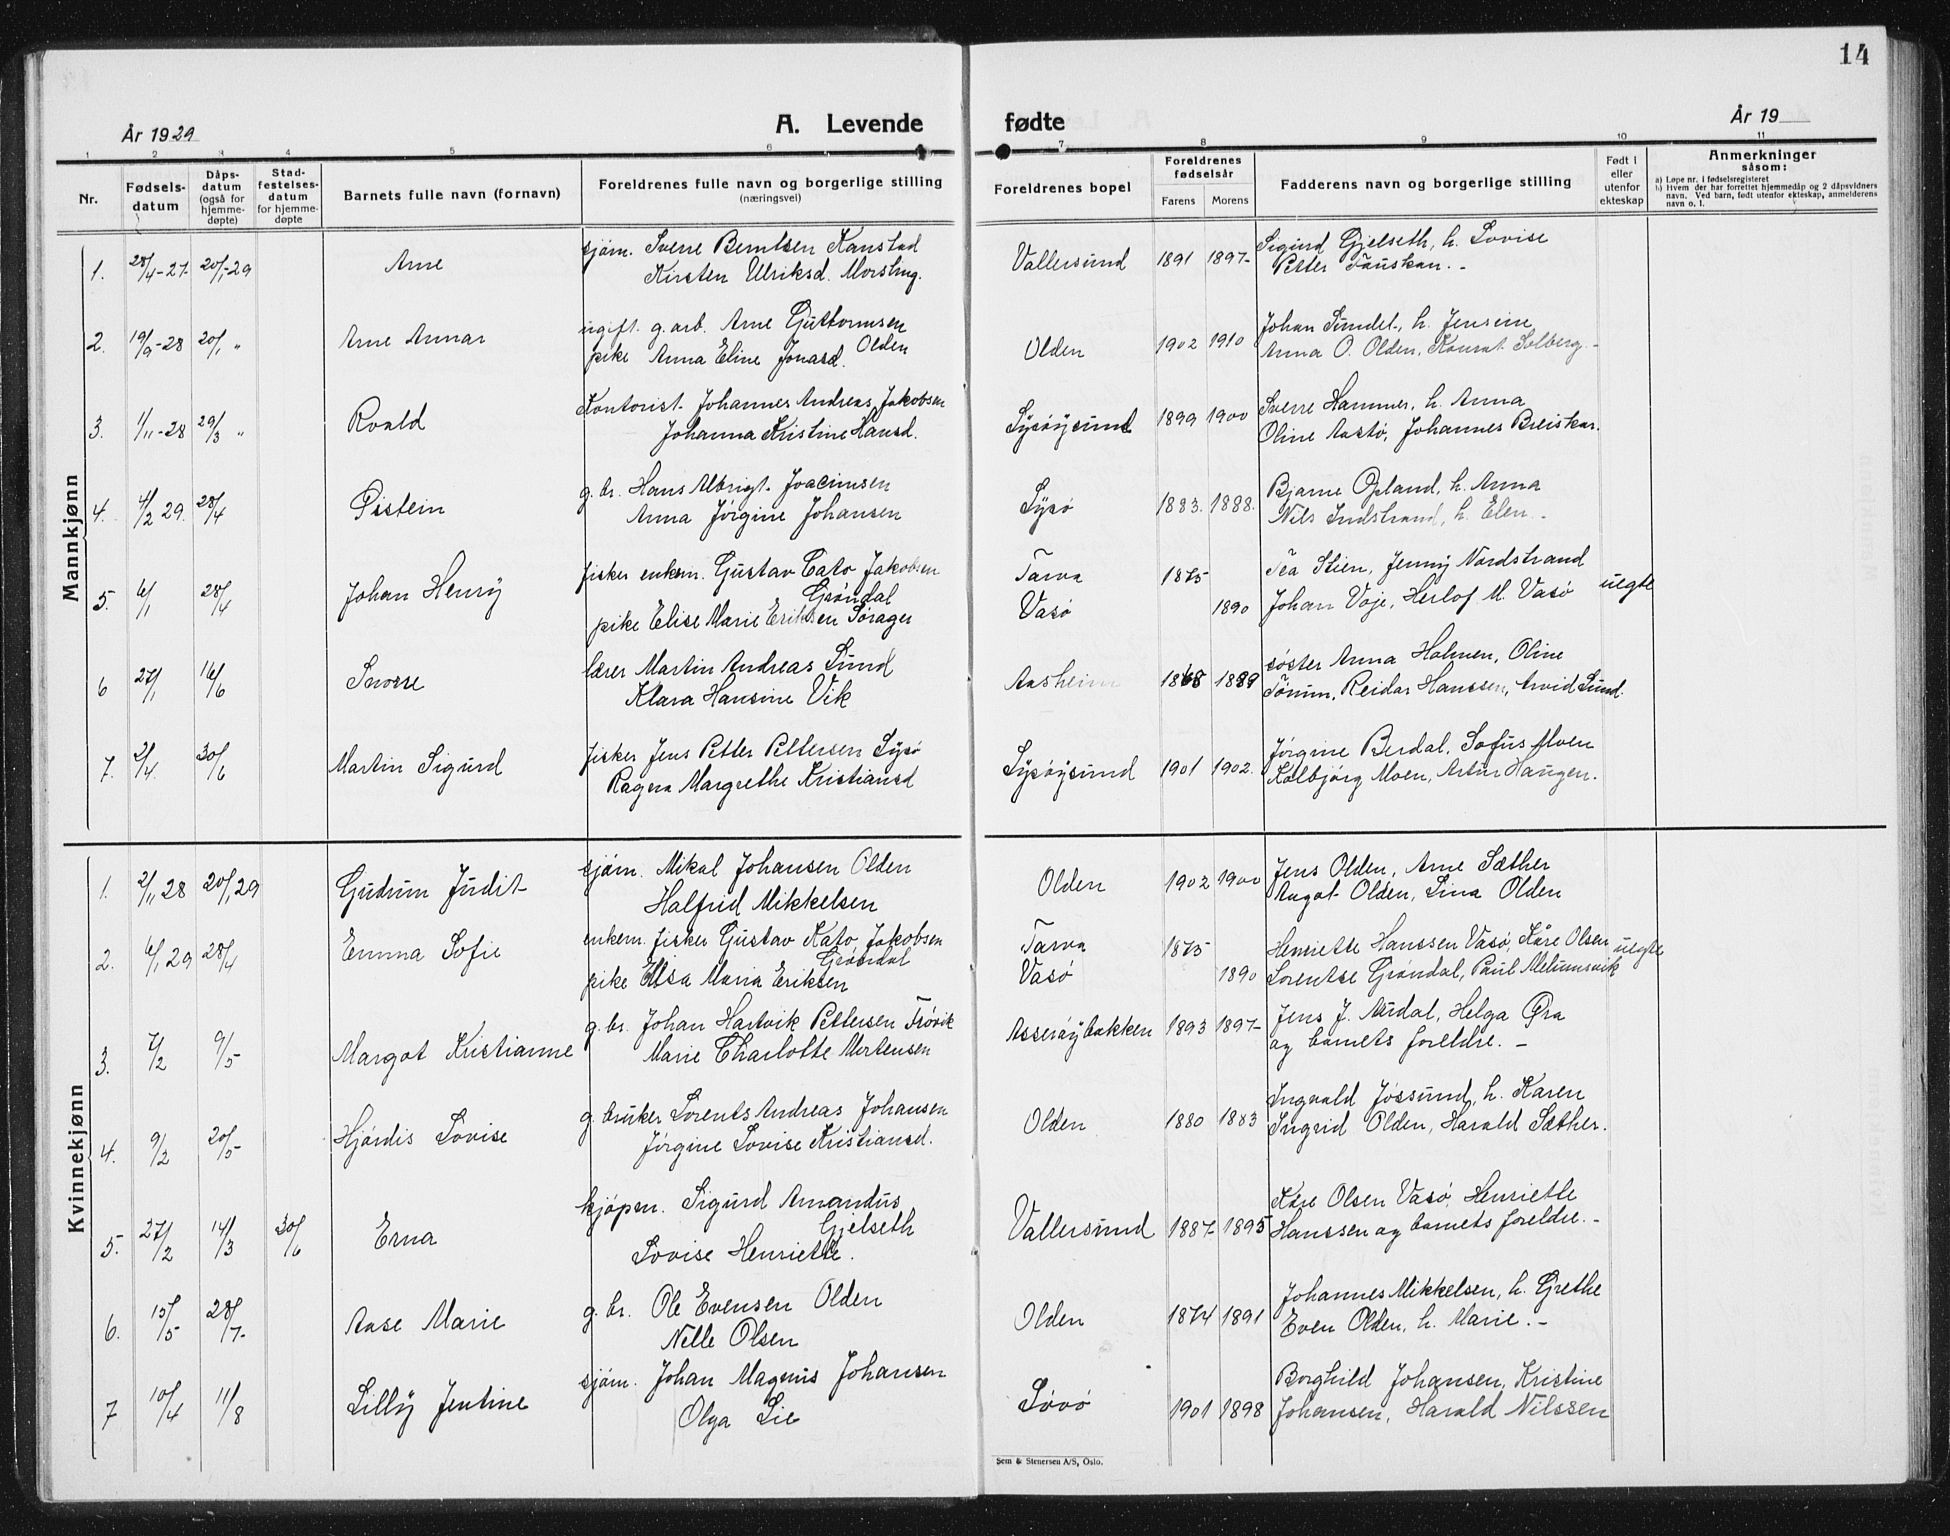 14
År 1929
A. Levende fødte
År 19
1 2 3 4 5 6 7 8 9 10 11
Nr.
Fødsels-
datum
Dåps-
datum
(også for
hjemme-
døpte)
Stad-
festelses-
datum
for hjemme-
døpte
Barnets fulle navn (fornavn)
Foreldrenes fulle navn og borgerlige stilling
(næringsvei)
Foreldrenes bopel
Foreldrenes
fødselsår
Farens Morens
Fadderens navn og borgerlige stilling
Født i
eller
utenfor
ekteskap
Anmerkninger
såsom:
a) Løpe nr. i fødselsregisteret
b) Hvem der har forrettet hjemmedåp og 2 dåpsvidners
navn. Ved barn, født utenfor ekteskap, anmelderens
navn o. l.
Mannkjønn
1. 28/4-27 20/1-29 Arne sjøm. Sverre Berntsen Kanstad Vallersund 1891 1897 Sigurd Gjelseth, h. Lovise
Kirsten Ulriksd. Petter Fauskan. -
2. 19/9-28 20/1 " Arne Annar ugift. g. arb. Arne Guttormsen Olden 1902 1910 Johan Sundet, h. Jensine
pike Anna Eline Jonasd. Olden Anna O. Olden, Konrat Solberg. -
3. 1/11-28 29/3 " Roald Kontorist. Johannes Andreas Jakobsen Lysøysund 1899 1900 Sverre Hammer, h. Anna
Johanna Kristine Hansd. Oline Aastø, Johannes Breiskar.
4. 4/2 29. 28/4 Øistein g. br. Hans Albrigt Joacimsen Lysø 1883. 1888. Bjarne Opland, h. Anna
Anna Jørgine Johansen Nils Indstrand, h. Elen. -
5. 6/1 28/4 Johan Henry fisker enkem. Gustav Cato Jakobsen Tarva 1875 Tea Stien, Jenny Nordstrand uegte
Grøndal
pike Elise Marie Eriksen Sørager Vasø 1890 Johan Voje, Herlof M. Vasø
6 27/1 16/6 Snorre lærer Martin Andreas Sund Aasheim 1868 1889 søster Anna Holmen, Oline
Klara Hansine Vik Tønum, Reidar Hanssen, Arvid Sund.
7. 2/4. 30/6 Martin Sigurd fisker Jens Petter Pettersen Lysø Lysøysund 1901 1902. Jørgine Berdal, Sofus Moen
Ragna Margrethe Kristiansd Kolbjørg Moen, Artur Haugen.
Kvinnekjønn
1. 2/11 28 20/1 29 Gudrun Judit sjøm. Mikal Johansen Olden Olden 1902 1900 Jens Olden, Arne Sæther
Halfrid Mikkelsen Aagot Olden, Lina Olden
2. 6/1 29 28/4 Emma Sofie enkem. fisker Gustav Kato Jakobsen Tarva 1875 Henriette Hanssen Vasø, Kåre Olsen uegte
Grøndal
pike Elisa Maria Eriksen Vasø 1890 Lorentse Grøndal, Paul Melumsvik
3. 7/2 9/5 Margot Kristianne g. br. Johan Hartvik Pettersen Frøvik Asserøybakken 1893 1897 Jens J. Aurdal, Helga Øra
Marie Charlotte Mortensen og barnets foreldre. -
4. 9/2 20/5 Hjørdis Lovise g. bruker Lorents Andreas Johansen Olden 1880 1883 Ingvald Jøssund, h. Karen
Jørgine Lovise Kristiansd. Ingrid Olden, Harald Sæther.
5. 27/2 14/3 30/6 Erna kjøpm. Sigurd Amandus Vallersund 1887 1895 Kåre Olsen Vasø, Henriette
Gjelseth
Lovise Henriette. Hanssen og barnets foreldre. -
6. 15/5 28/7 Aase Marie g. br. Ole Evensen Olden Olden 1874 1891 Johannes Mikkelsen, h. Grethe
Nelle Olsen Even Olden, h. Marie. -
7 10/4 11/8 Lilly Jentine sjøm. Johan Magnus Johansen Løvø 1901 1898 Borghild Johansen, Kristine
Olga Lie Johansen, Harald Nilssen
Sem & Stenersen A/S, Oslo.